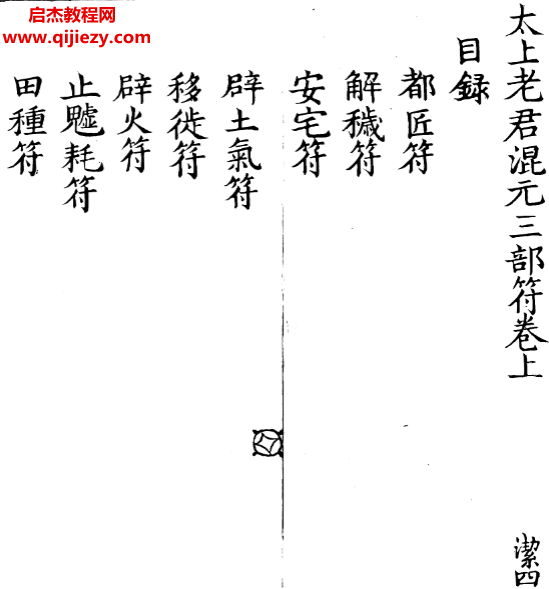 启杰教程网
www.qijiezy.com
太上老君混元三部符卷上
潔四
目録
都匠符
解穢符
安宅符
辟土氣符
移徙符
辟火符
止魖耗符
田種符